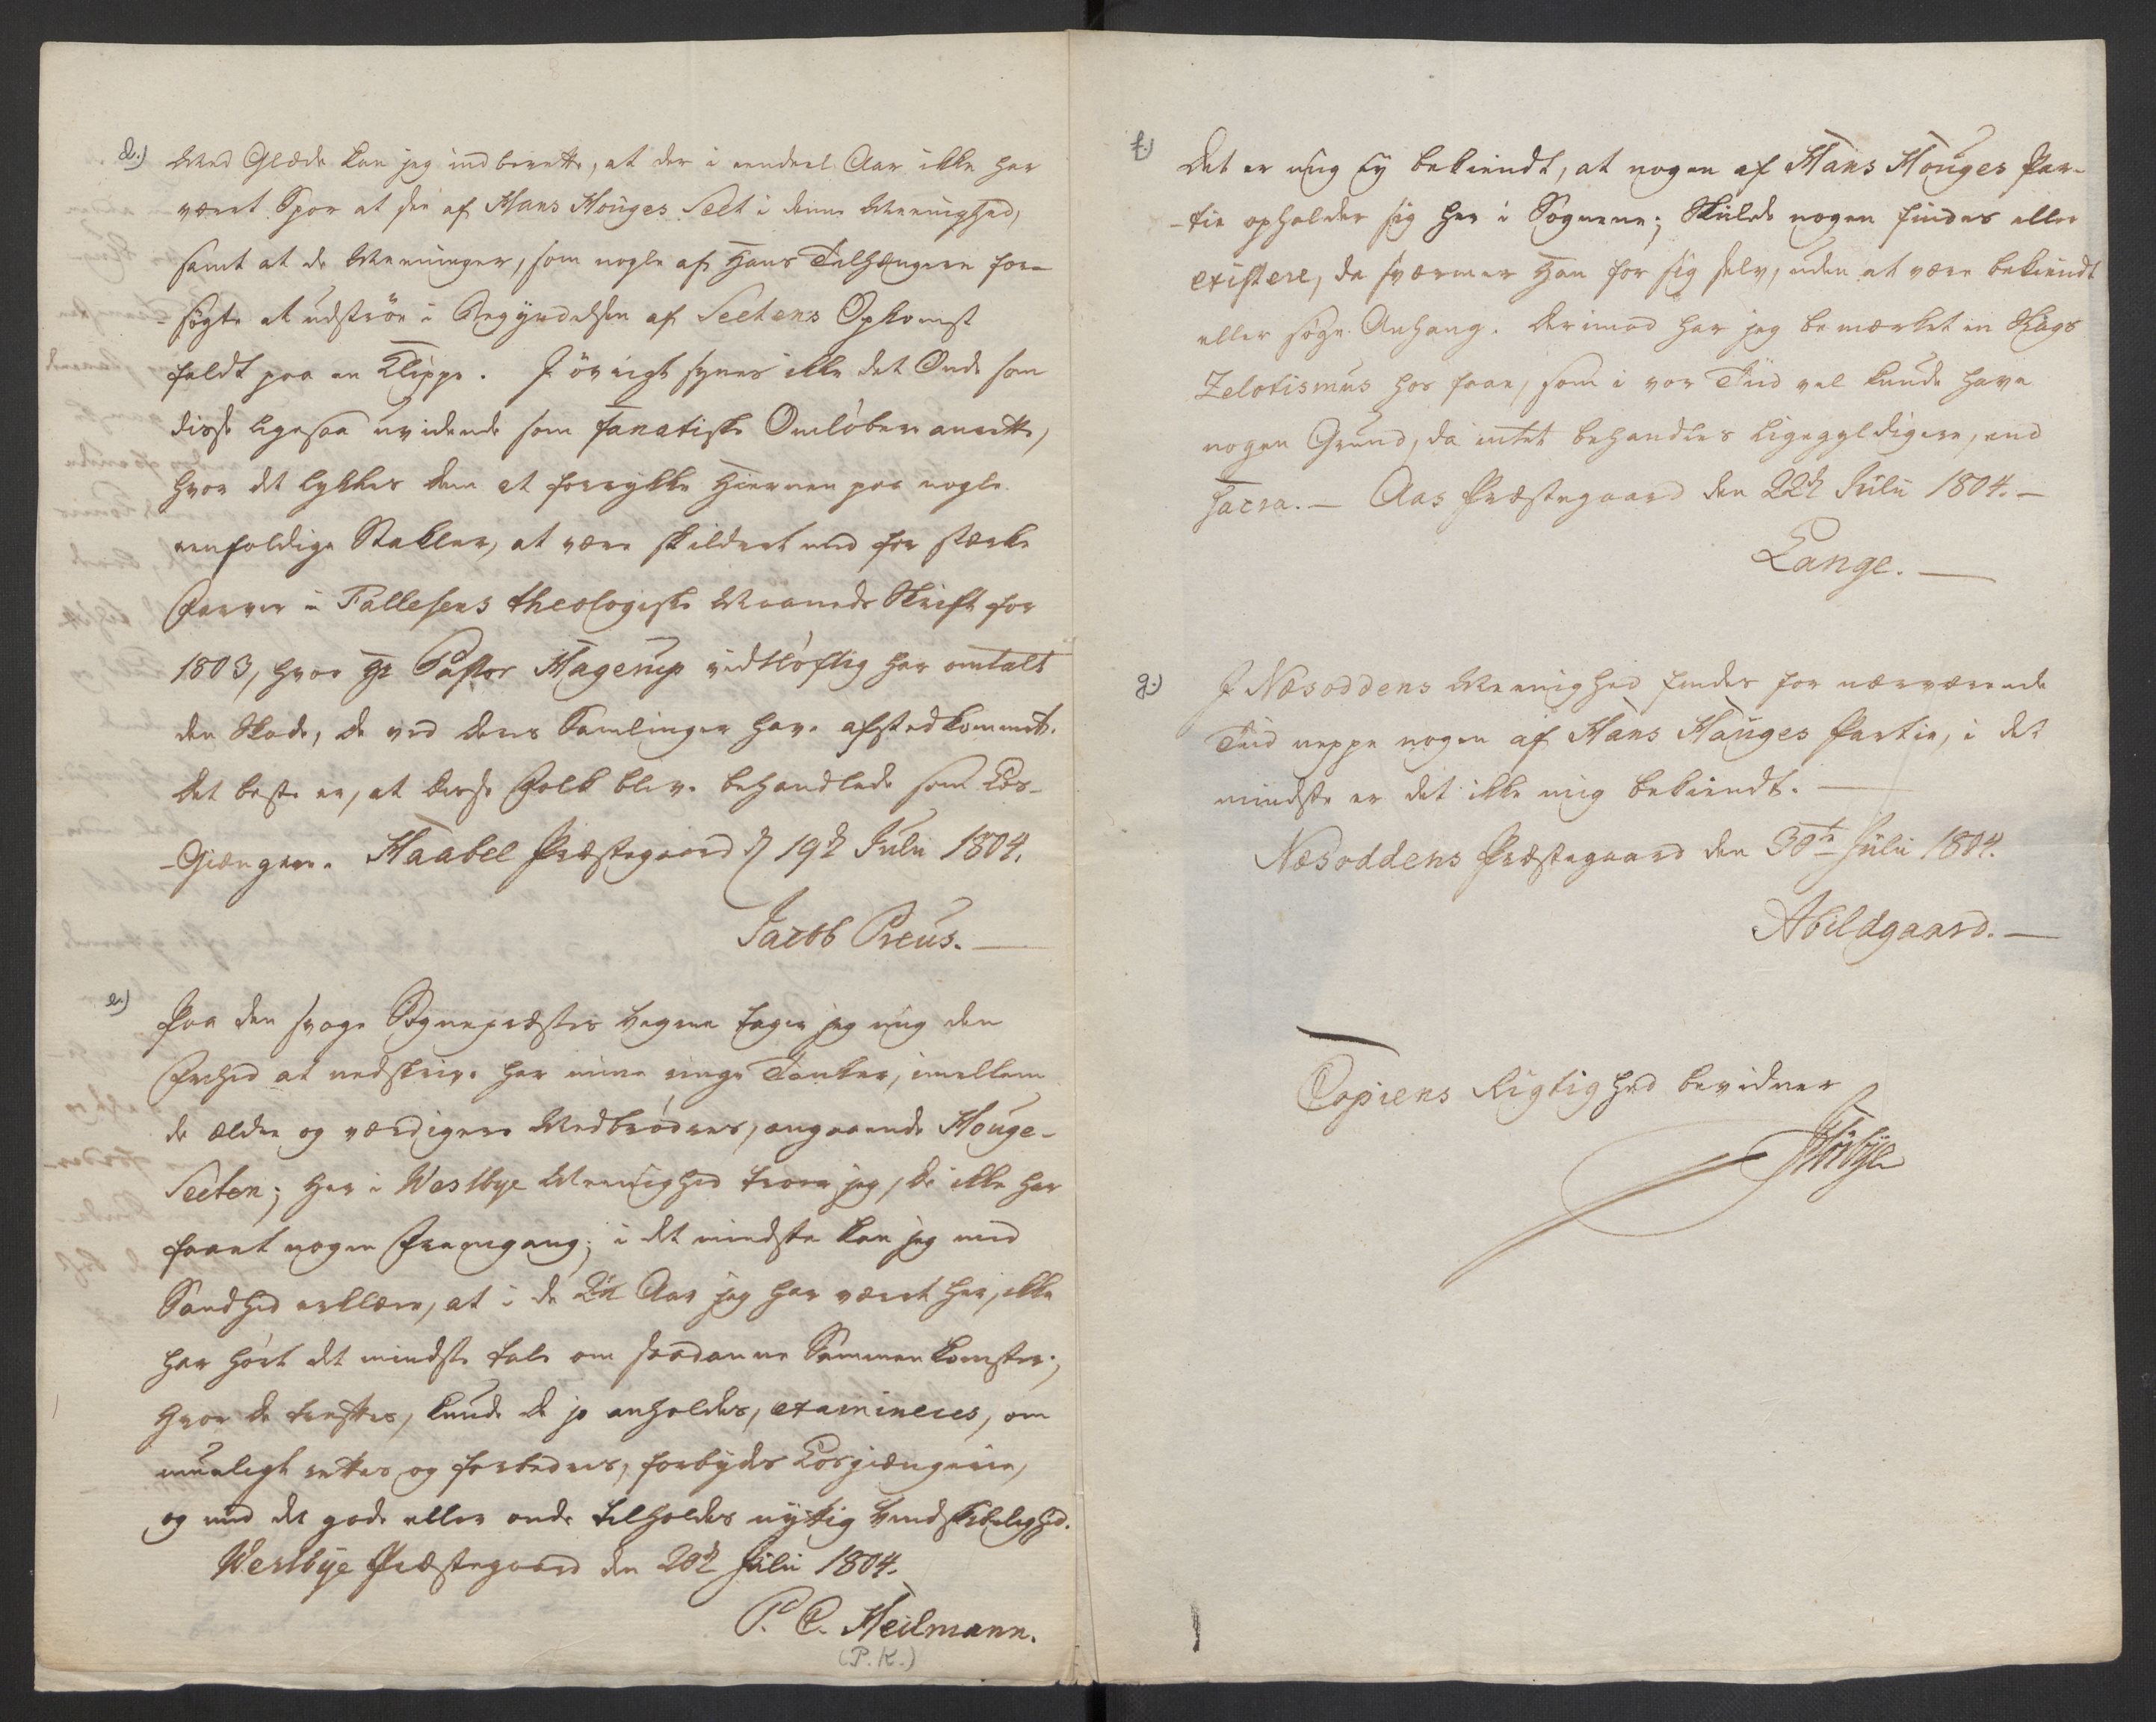 d.) Med Glæde kan jeg indberette, at der i eendeel Aar ikke har
været Spor at see af Hans Houges Sect i denne Menighed,
samt at de Meeninger, som nogle af Hans Tilhængere for-
søgte at udströe i Begyndelsen af Sectens Opkomst
faldt paa en Klippe. I övrigt synes ikke det Onde som
disse ligesaa uvidende som fanatiske Omlöbere anrette,
hvor det lykkes dem at forrykke Hiernen paa nogle
eenfoldige Stakler, at være skildret med for stærke
Farver i Fallesens theologiske Maaneds Skrift for
1803, hvor Hr Pastor Hagerup vidtlöftig har omtalt
den Skade, de ved deres Samlinger have afstedkommet.
Det beste er, at disse Folk blive behandlede som Lös-
-Giængere. Haabel Præstegaard d 19d Julii 1804.
Jacob Preus.
e.) Paa den svage Sognepræstes Vegne tager jeg mig den
Frihed at nedskrive her mine ringe Tanker, imellem
de ældre og værdigere Medbrödres, angaaende Houge-
Secten; Her i Westbye Menighed troer jeg, de ikke har
faaet nogen Fremgang; i det mindste kan jeg med
Sandhed erklære, at i de 2½ Aar jeg har været her, ikke
har hört det mindste tale om saadanne Sammenkomster;
Hvor de treffes, kunde de jo anholdes, examineres, om
mueligt rettes og forbedres, forbydes Lösgiængerie,
og med det gode eller onde tilholdes nyttig Vindskibelighed.
Westbye Præstegaard den 20d Julii 1804.
P. C. Heilmann.
(P.K.)
f.) Det er mig ey bekiendt, at nogen af Hans Houges Par-
-tie opholder sig her i Sognene; Skulde nogen findes eller
existere, da sværmer Han for sig selv, uden at være bekiendt
eller søge Anhang. Derimod har jeg bemærket en Slags
Zelotismus hos faae, som i vor Tiid vel kunde have
nogen Grund, da intet behandles ligegyldigere, end
Sacra. — Aas Præstegaard den 22d Julii 1804. —
Lange. —
g.) I Næsoddens Menighed findes for nærværende
Tiid neppe nogen af Hans Hauges Partie, i det
mindste er det ikke mig bekiendt. —
Næsoddens Præstegaard den 30te Julii 1804.
Abildgaard. —
Copiens Rigtighed bevidner